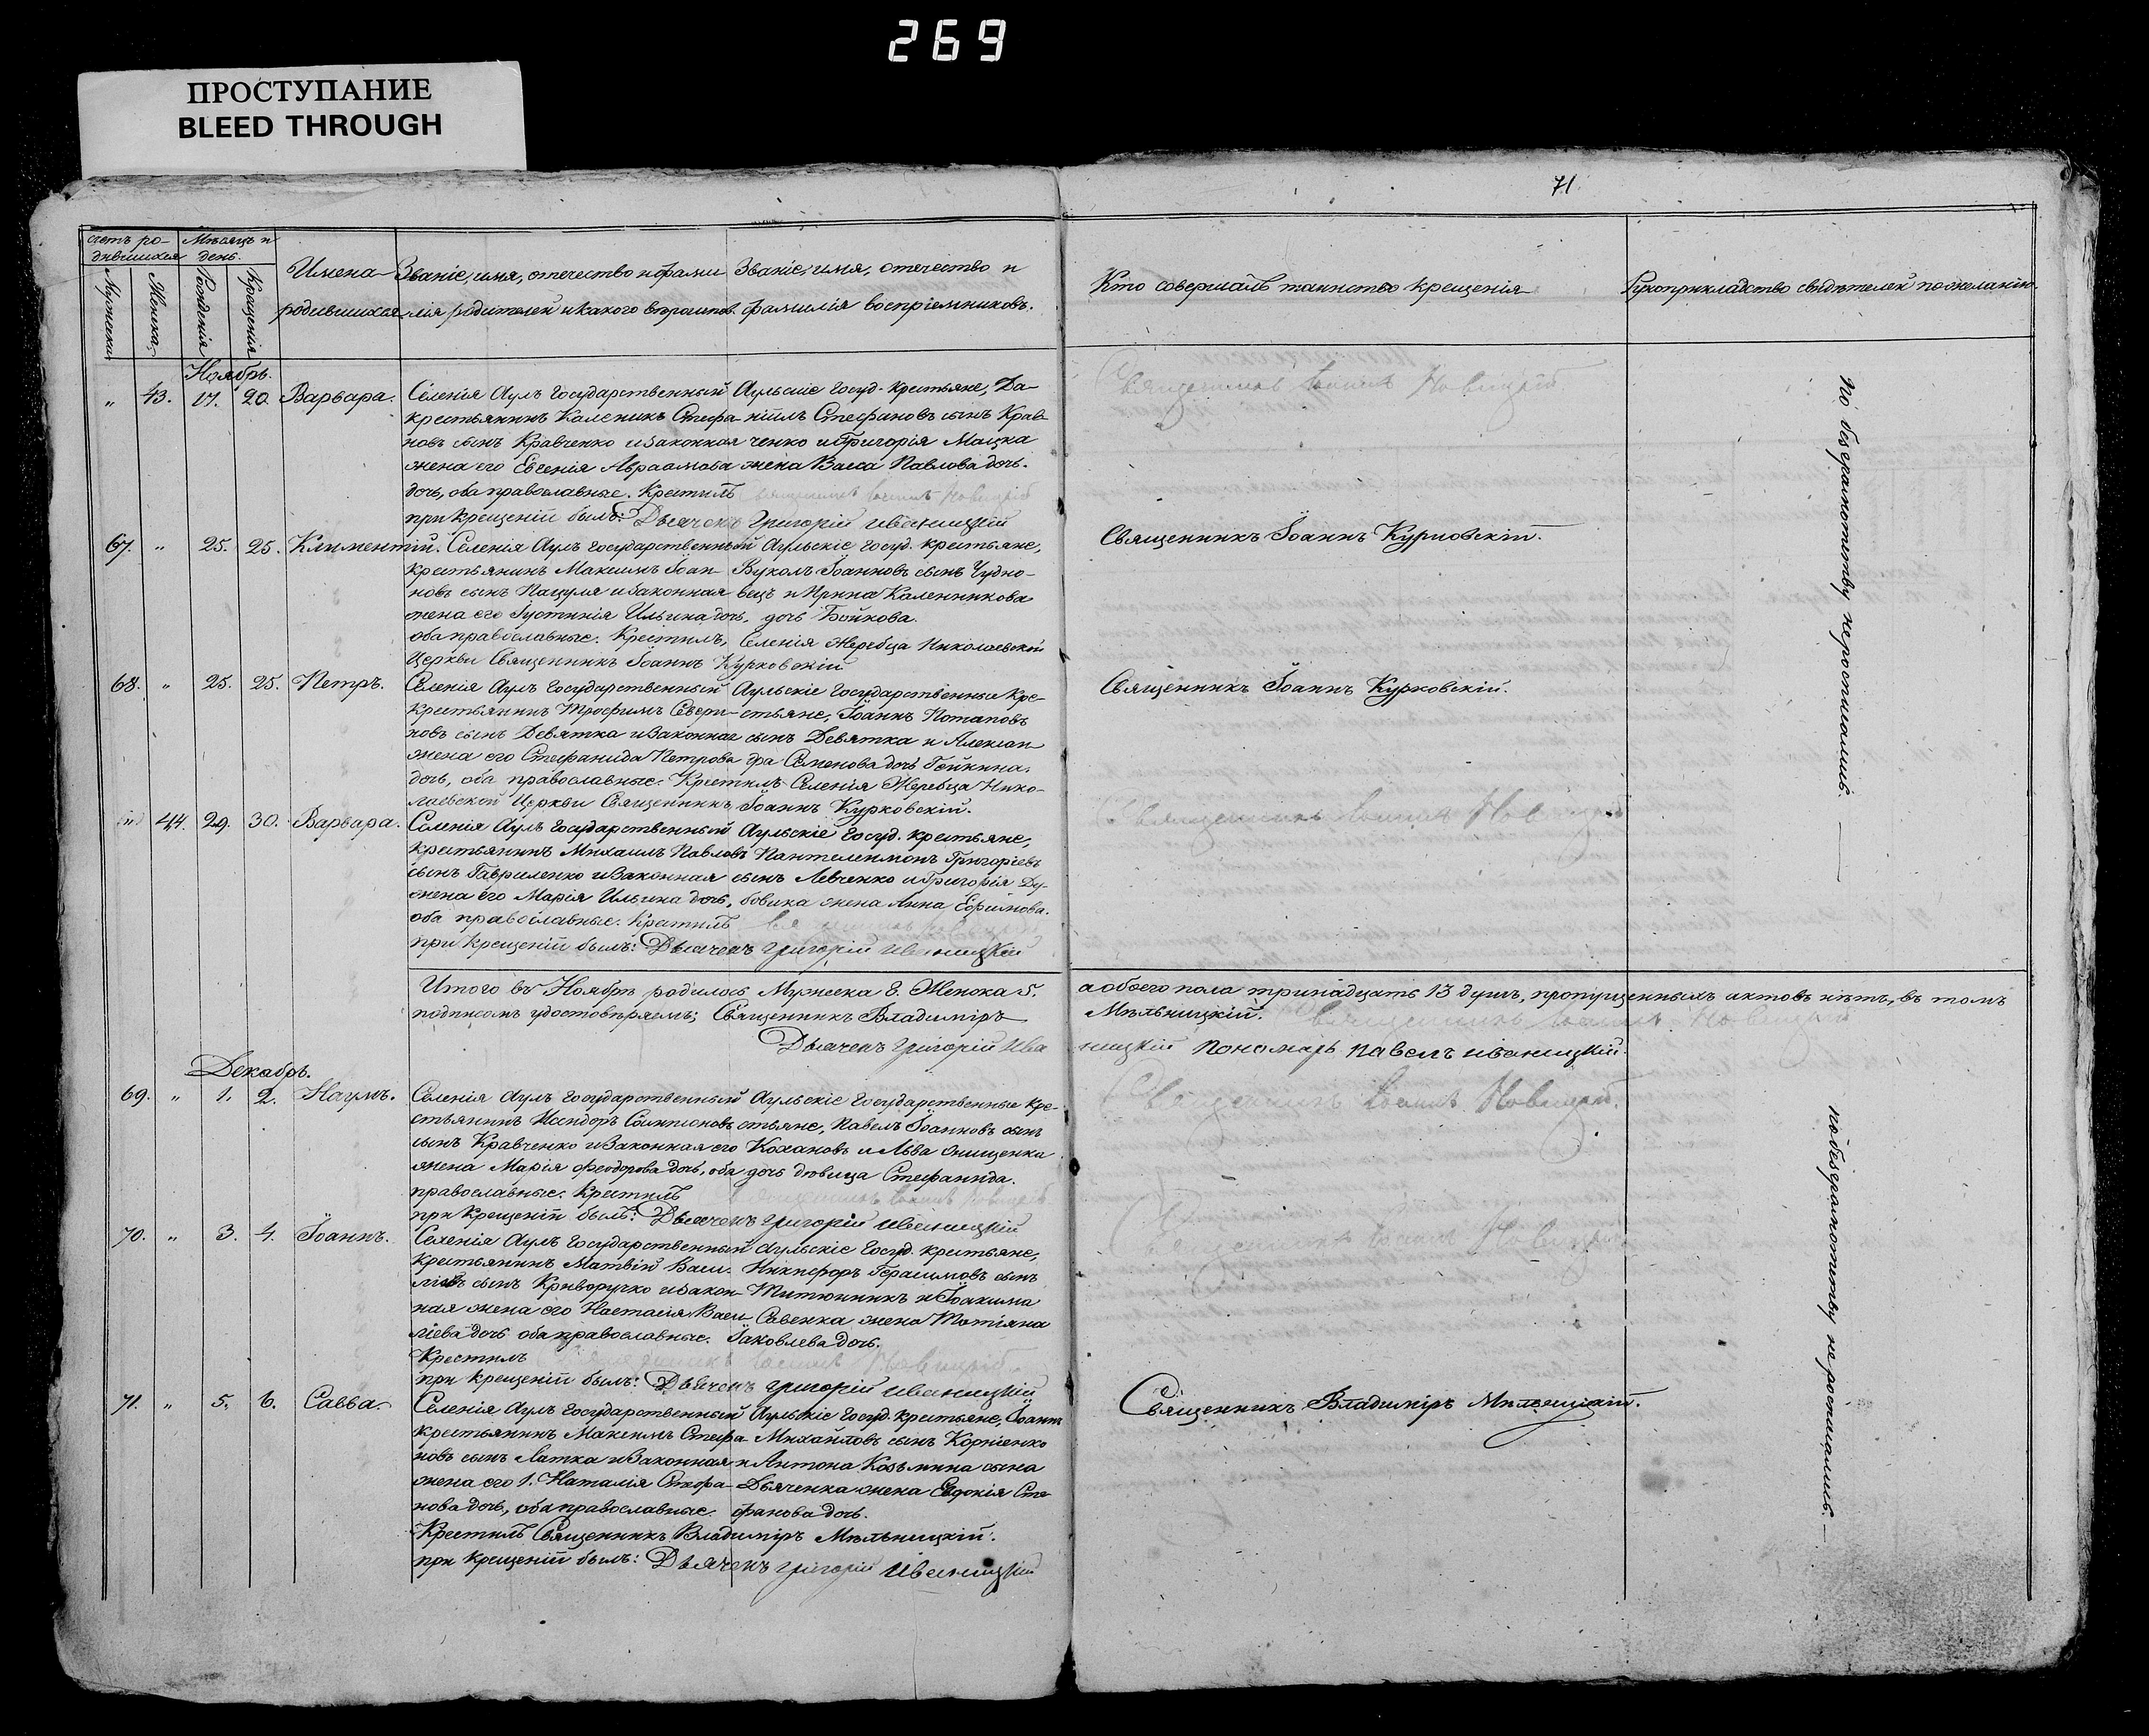 269
ПРОСТУПАНИЕ
BLEED THROUGH
71
счетъ ро-
дившихся
Мужеска
Женска
Мѣсяцъ и
день.
Рожденія
Крещенія
Имена
родившихся
Званіе, имя, отечество и фами
лія родителей и какого вѣроисповѣ.
Званіе, имя, отечество и
фамилія воспріемниковъ.
Кто совершалъ таинство крещенія
Рукоприкладство свидѣтелей по желанію.
Ноябрь.
" 43. 17. 20. Варвара.
Селенія Аулъ государственный
крестьянинъ Каленикъ Стефа
новъ сынъ Кравченко и законная
жена его Евгенія Авраамова
дочь, оба православные. Крестилъ
Аульскіе госуд. крестьяне, Да-
ніилъ Стефановъ сынъ Крав-
ченко и Григорія Мацка
жена Васса Павлова дочь.
Священникъ Іоаннъ Новицкій
при крещеніи былъ: Дьячекъ Григорій Иваницкій
Священникъ Іоаннъ Новицкій.
67. " 25. 25. Климентій.
Селенія Аулъ государственный
крестьянинъ Максимъ Іоан-
новъ сынъ Пацуля и законная
жена его Іустинія Ильина дочь,
оба православные. Крестилъ,
Аульскіе госуд. крестьяне,
Вуколъ Іоанновъ сынъ Чудно-
вецъ и Ирина Каленникова
дочь Бойкова.
Селенія Жеребца Николаевской
Церкви Священникъ Іоаннъ Курковскій
Священникъ Іоаннъ Курковскій.
68. " 25. 25. Петръ.
Селенія Аулъ государственный
крестьянинъ Трофимъ Севери-
новъ сынъ Девятка и законная
жена его Стефанида Петрова
дочь, оба православные. Крестилъ Селенія Жеребца Нико-
Аульскіе государственные кре-
стьяне, Іоаннъ Потаповъ
сынъ Девятка и Алексан
дра Семенова дочь
лаевской Церкви Священникъ Іоаннъ Курковскій.
Священникъ Іоаннъ Курковскій.
" 44. 29. 30. Варвара.
Селенія Аулъ государственный
крестьянинъ Михаилъ Павловъ
сынъ Гавриленко и законная
жена его Марія Ильина дочь,
оба православные. Крестилъ
Аульскіе госуд. крестьяне,
Пантелеимонъ Григорьевъ
сынъ Левченко и Григорія Ду-
бовика жена Анна Ефимова.
при крещеніи былъ: Дьячекъ Григорій Иваницкій
Священникъ Іоаннъ Новицкій
По безграмотству не росписались.
Итого въ Ноябрѣ родилось Мужеска 8. Женска 5. а обоего пола тринадцать 13 душъ, пропущенныхъ актовъ нѣтъ, въ томъ
подписомъ удостовѣряемъ; Священникъ Владиміръ Мѣльницкій. Священникъ Іоаннъ Новицкій
Дьячекъ Григорій Иваницкій Пономарь Павелъ Иваницкій.
Декабрь.
69. " 1. 2. Наумъ.
Селенія Аулъ государственный кре-
стьянинъ Исидоръ Сампсоновъ
сынъ Кравченко и законная его
жена Марія Феодорова дочь, оба
православные. Крестилъ
Аульскіе государственные кре-
стьяне, Павелъ Іоанновъ сынъ
Кохановъ и Льва Онищенки
дочь дѣвица Стефанида.
Священникъ Іоаннъ Новицкій
при крещеніи былъ: Дьячекъ Григорій Иваницкій
Священникъ Іоаннъ Новицкій.
70. " 3. 4. Іоаннъ.
Селенія Аулъ государственный
крестьянинъ Матвій Васи-
ліевъ сынъ Криворучко и закон-
ная жена его Настасія Васи-
ліева дочь оба православные.
Крестилъ Священникъ Іоаннъ Новицкій
Аульскіе госуд. крестьяне,
Никифоръ Герасимовъ сынъ
Титюнникъ и Іоакима
Савенка жена Татіяна
Іаковлева дочь.
при крещеніи былъ: Дьячекъ Григорій Иваницкій
Священникъ Іоаннъ Новицкій
71. " 5. 6. Савва.
Селенія Аулъ государственный
крестьянинъ Максимъ Стефа-
новъ сынъ Латка и законная
жена его 1. Наталія Стефа-
нова дочь, оба православные.
Аульскіе госуд. крестьяне, Іоаннъ
Михайловъ сынъ Корніенко
и Антона Козьмина сына
Дьяченка жена Евдокія Сте
фанова дочь.
Крестилъ Священникъ Владиміръ Мѣльницкій.
при крещеніи былъ: Дьячекъ Григорій Иваницкій
Священникъ Владиміръ Мѣльницкій.
по безграмотству не росписались.